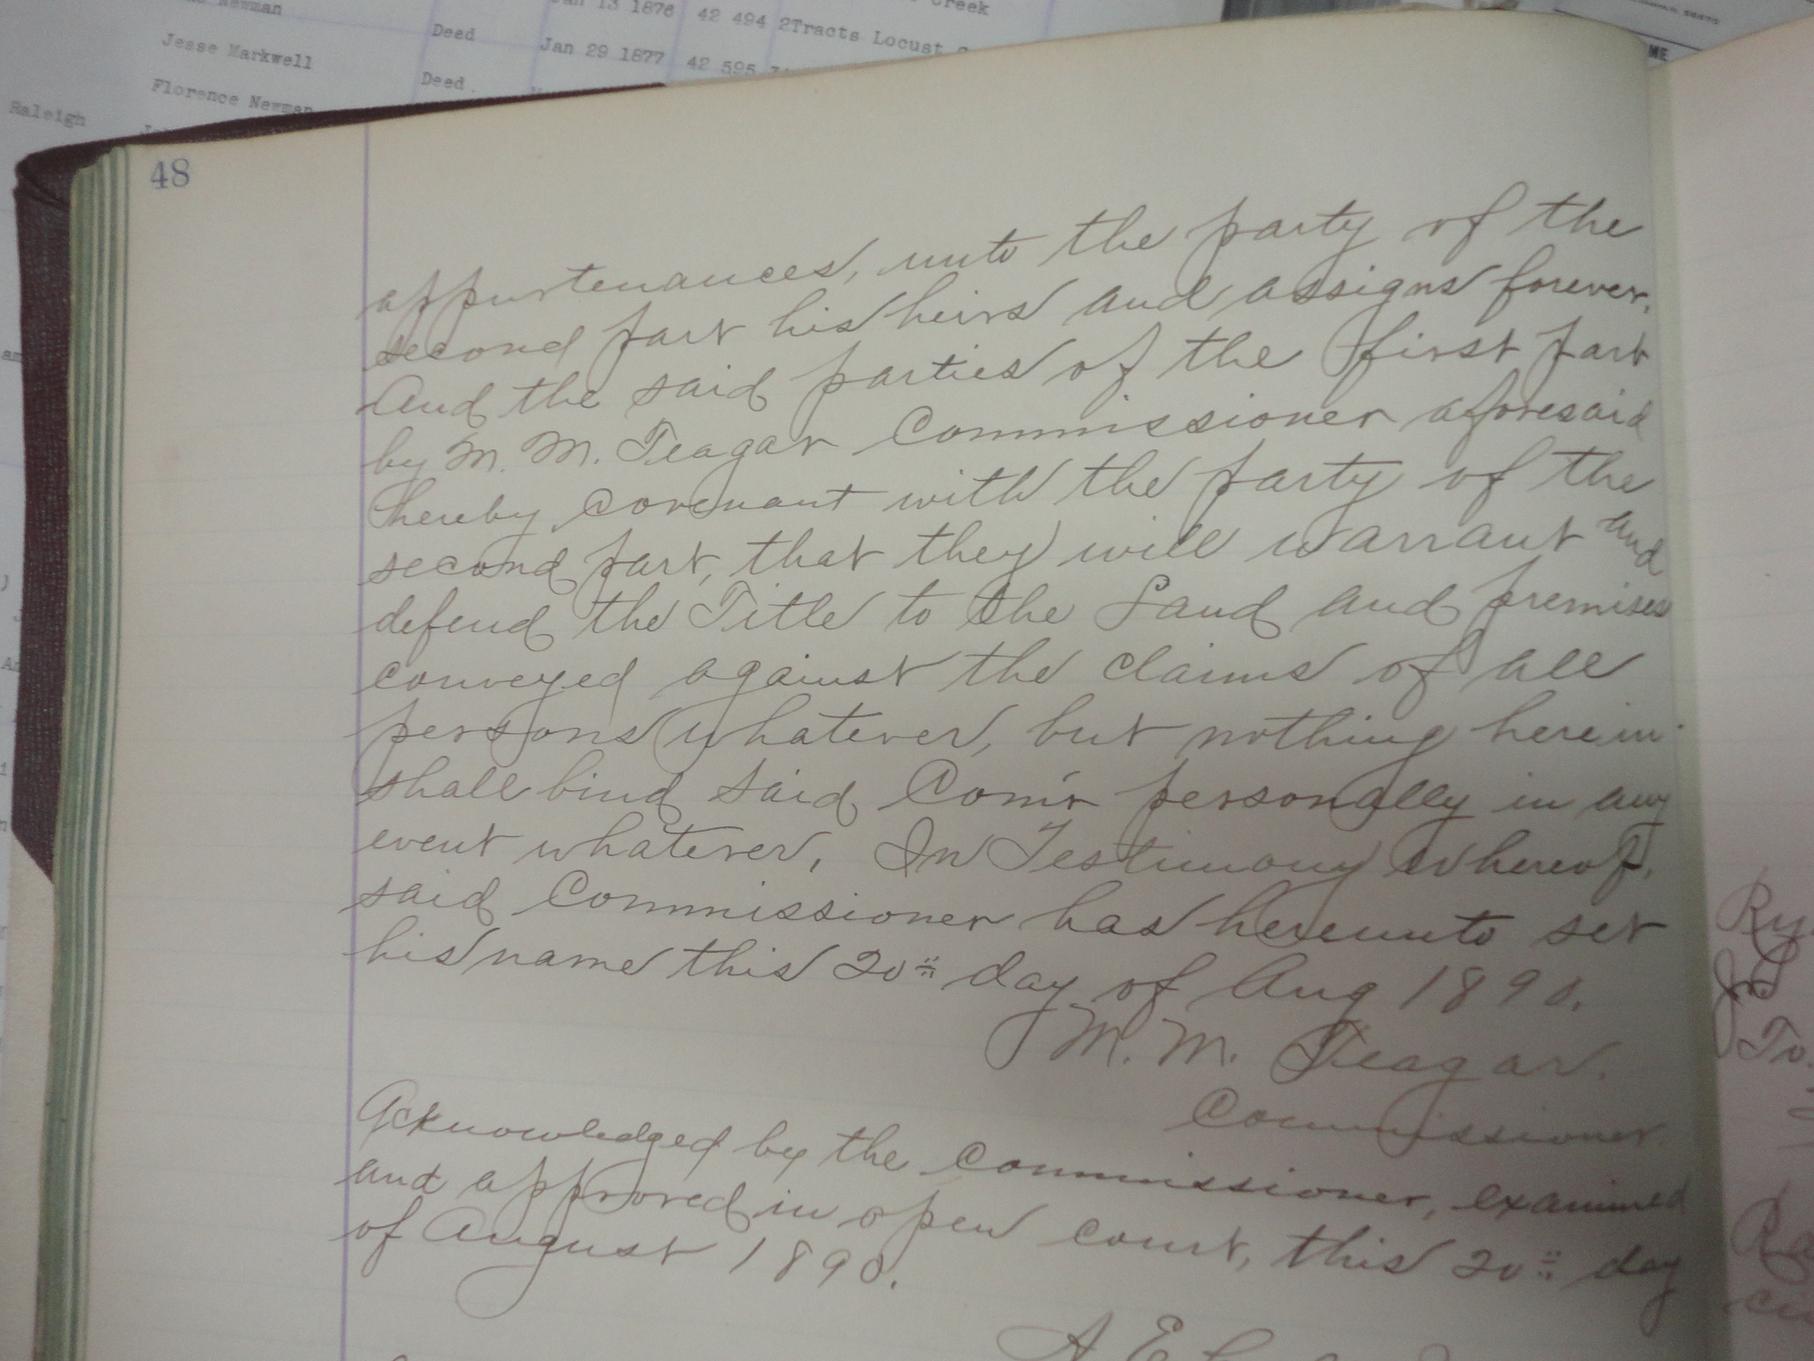 Newman
Jan 13 1876 42 494 2Tracts Locust
Creek
Jesse Markwell Deed Jan 29 1877 42 595
Florence Newman Deed
Raleigh
ME
48
appurtenances, unto the party of the
second part his heirs and assigns forever.
And the said parties of the first part
by M. M. Teagar Commissioner aforesaid
hereby covenant with the party of the
second part, that they will warrant and
defend the Title to the Land and premises
conveyed against the claims of all
persons whatever, but nothing herein
shall bind said Com'r personally in any
event whatever. In Testimony Whereof,
said Commissioner has hereunto set
his name this 20th day of Aug 1890.
M. M. Teagar.
Commissioner
Acknowledged by the Commissioner, examined
and approved in open court, this 20th day
of August 1890.
A E
Ry.
To.